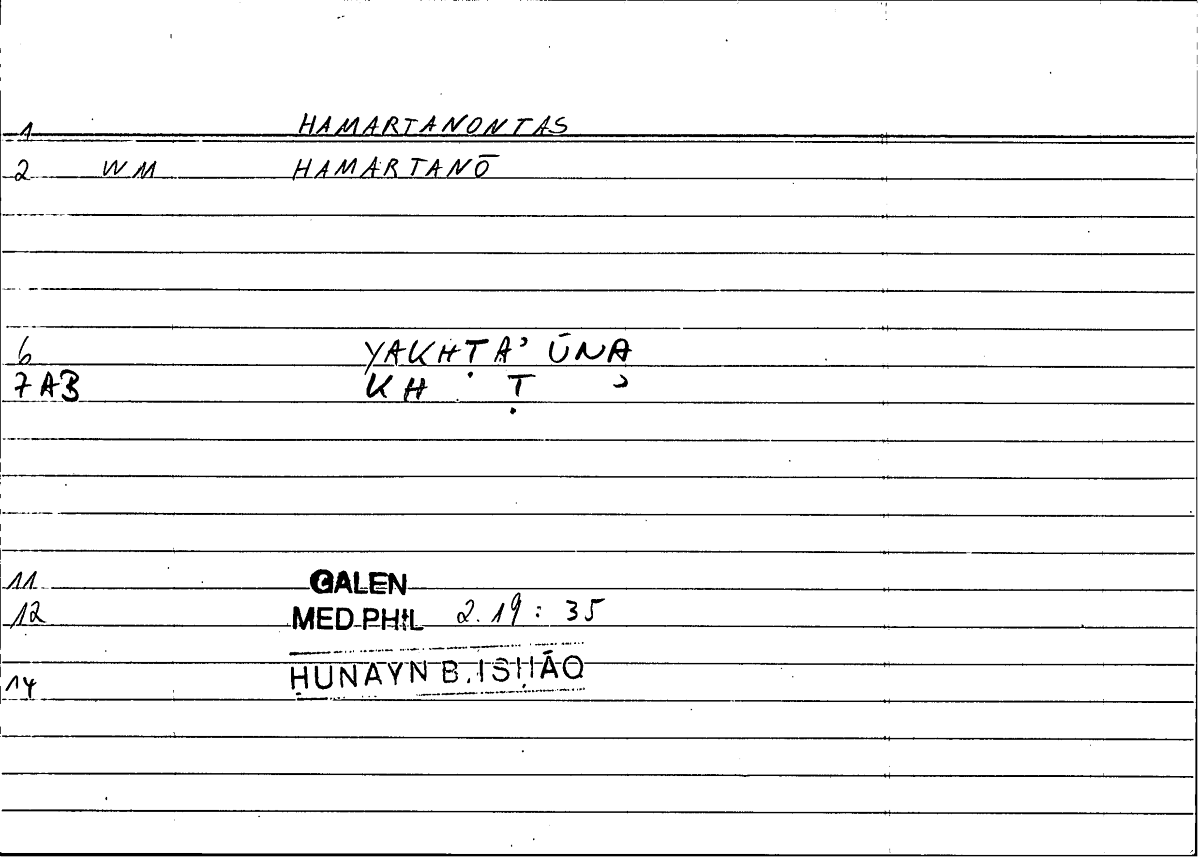 1 HAMARTANONTAS
2 WM HAMARTANŌ
6 YAKHṬA’ŪNA
7AB KH Ṭ ’
11 GALEN
12 MED PHIL 2.19 : 35
14 ḤUNAYN B. ISḤĀQ